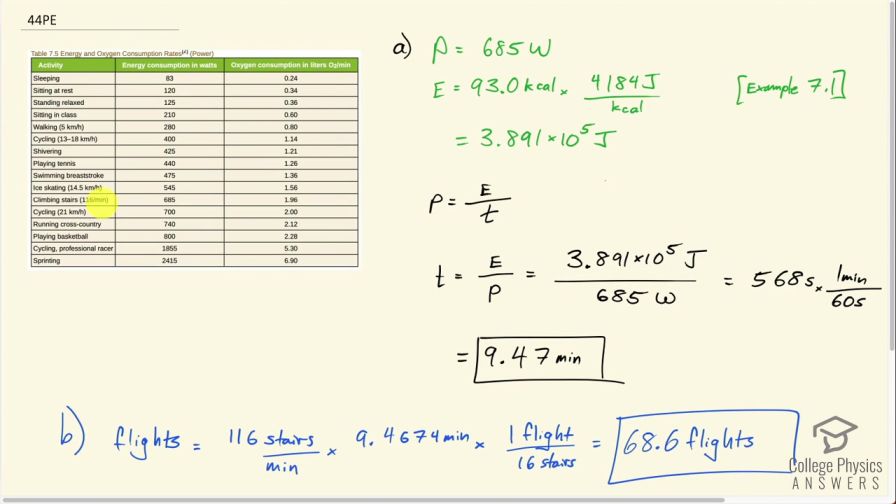 44PE
Table 7.5 Energy and Oxygen Consumption Rates[2] (Power)
Activity Energy consumption in watts Oxygen consumption in liters O2/min
Sleeping 83 0.24
Sitting at rest 120 0.34
Standing relaxed 125 0.36
Sitting in class 210 0.60
Walking (5 km/h) 280 0.80
Cycling (13–18 km/h) 400 1.14
Shivering 425 1.21
Playing tennis 440 1.26
Swimming breaststroke 475 1.36
Ice skating (14.5 km/h) 545 1.56
Climbing stairs (116/min) 685 1.96
Cycling (21 km/h) 700 2.00
Running cross-country 740 2.12
Playing basketball 800 2.28
Cycling, professional racer 1855 5.30
Sprinting 2415 6.90
a) P = 685 W
E = 93.0 kcal × 4184 J / kcal [Example 7.1]
= 3.891 × 10⁵ J
P = E / t
t = E / P = 3.891 × 10⁵ J / 685 W = 568 s × 1 min / 60 s
= 9.47 min
b) flights = 116 stairs / min × 9.4674 min × 1 flight / 16 stairs = 68.6 flights
College Physics
ANSWERS